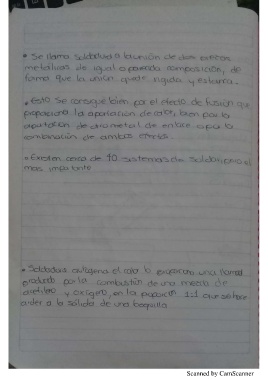 • Se llama soldadura a la unión de dos piezas
metalicas de igual o parecida composición, de
forma que la union quede rigida y estanca.
• Esto se consigue bien por el efecto de fusión que
proporciona la aportación de calor, bien por la
aportación de otro metal de enlace o por la
combinación de ambos efectos.
• Existen cerca de 40 sistemas de soldar, pero el
mas importante
• Soldadura oxiagena el calor lo proporciona una llama
producto por la combustión de una mezcla de
acetileno y oxigeno, en la proporcion 1:1 que se hace
arder a la salida de una boquilla
Scanned by CamScanner